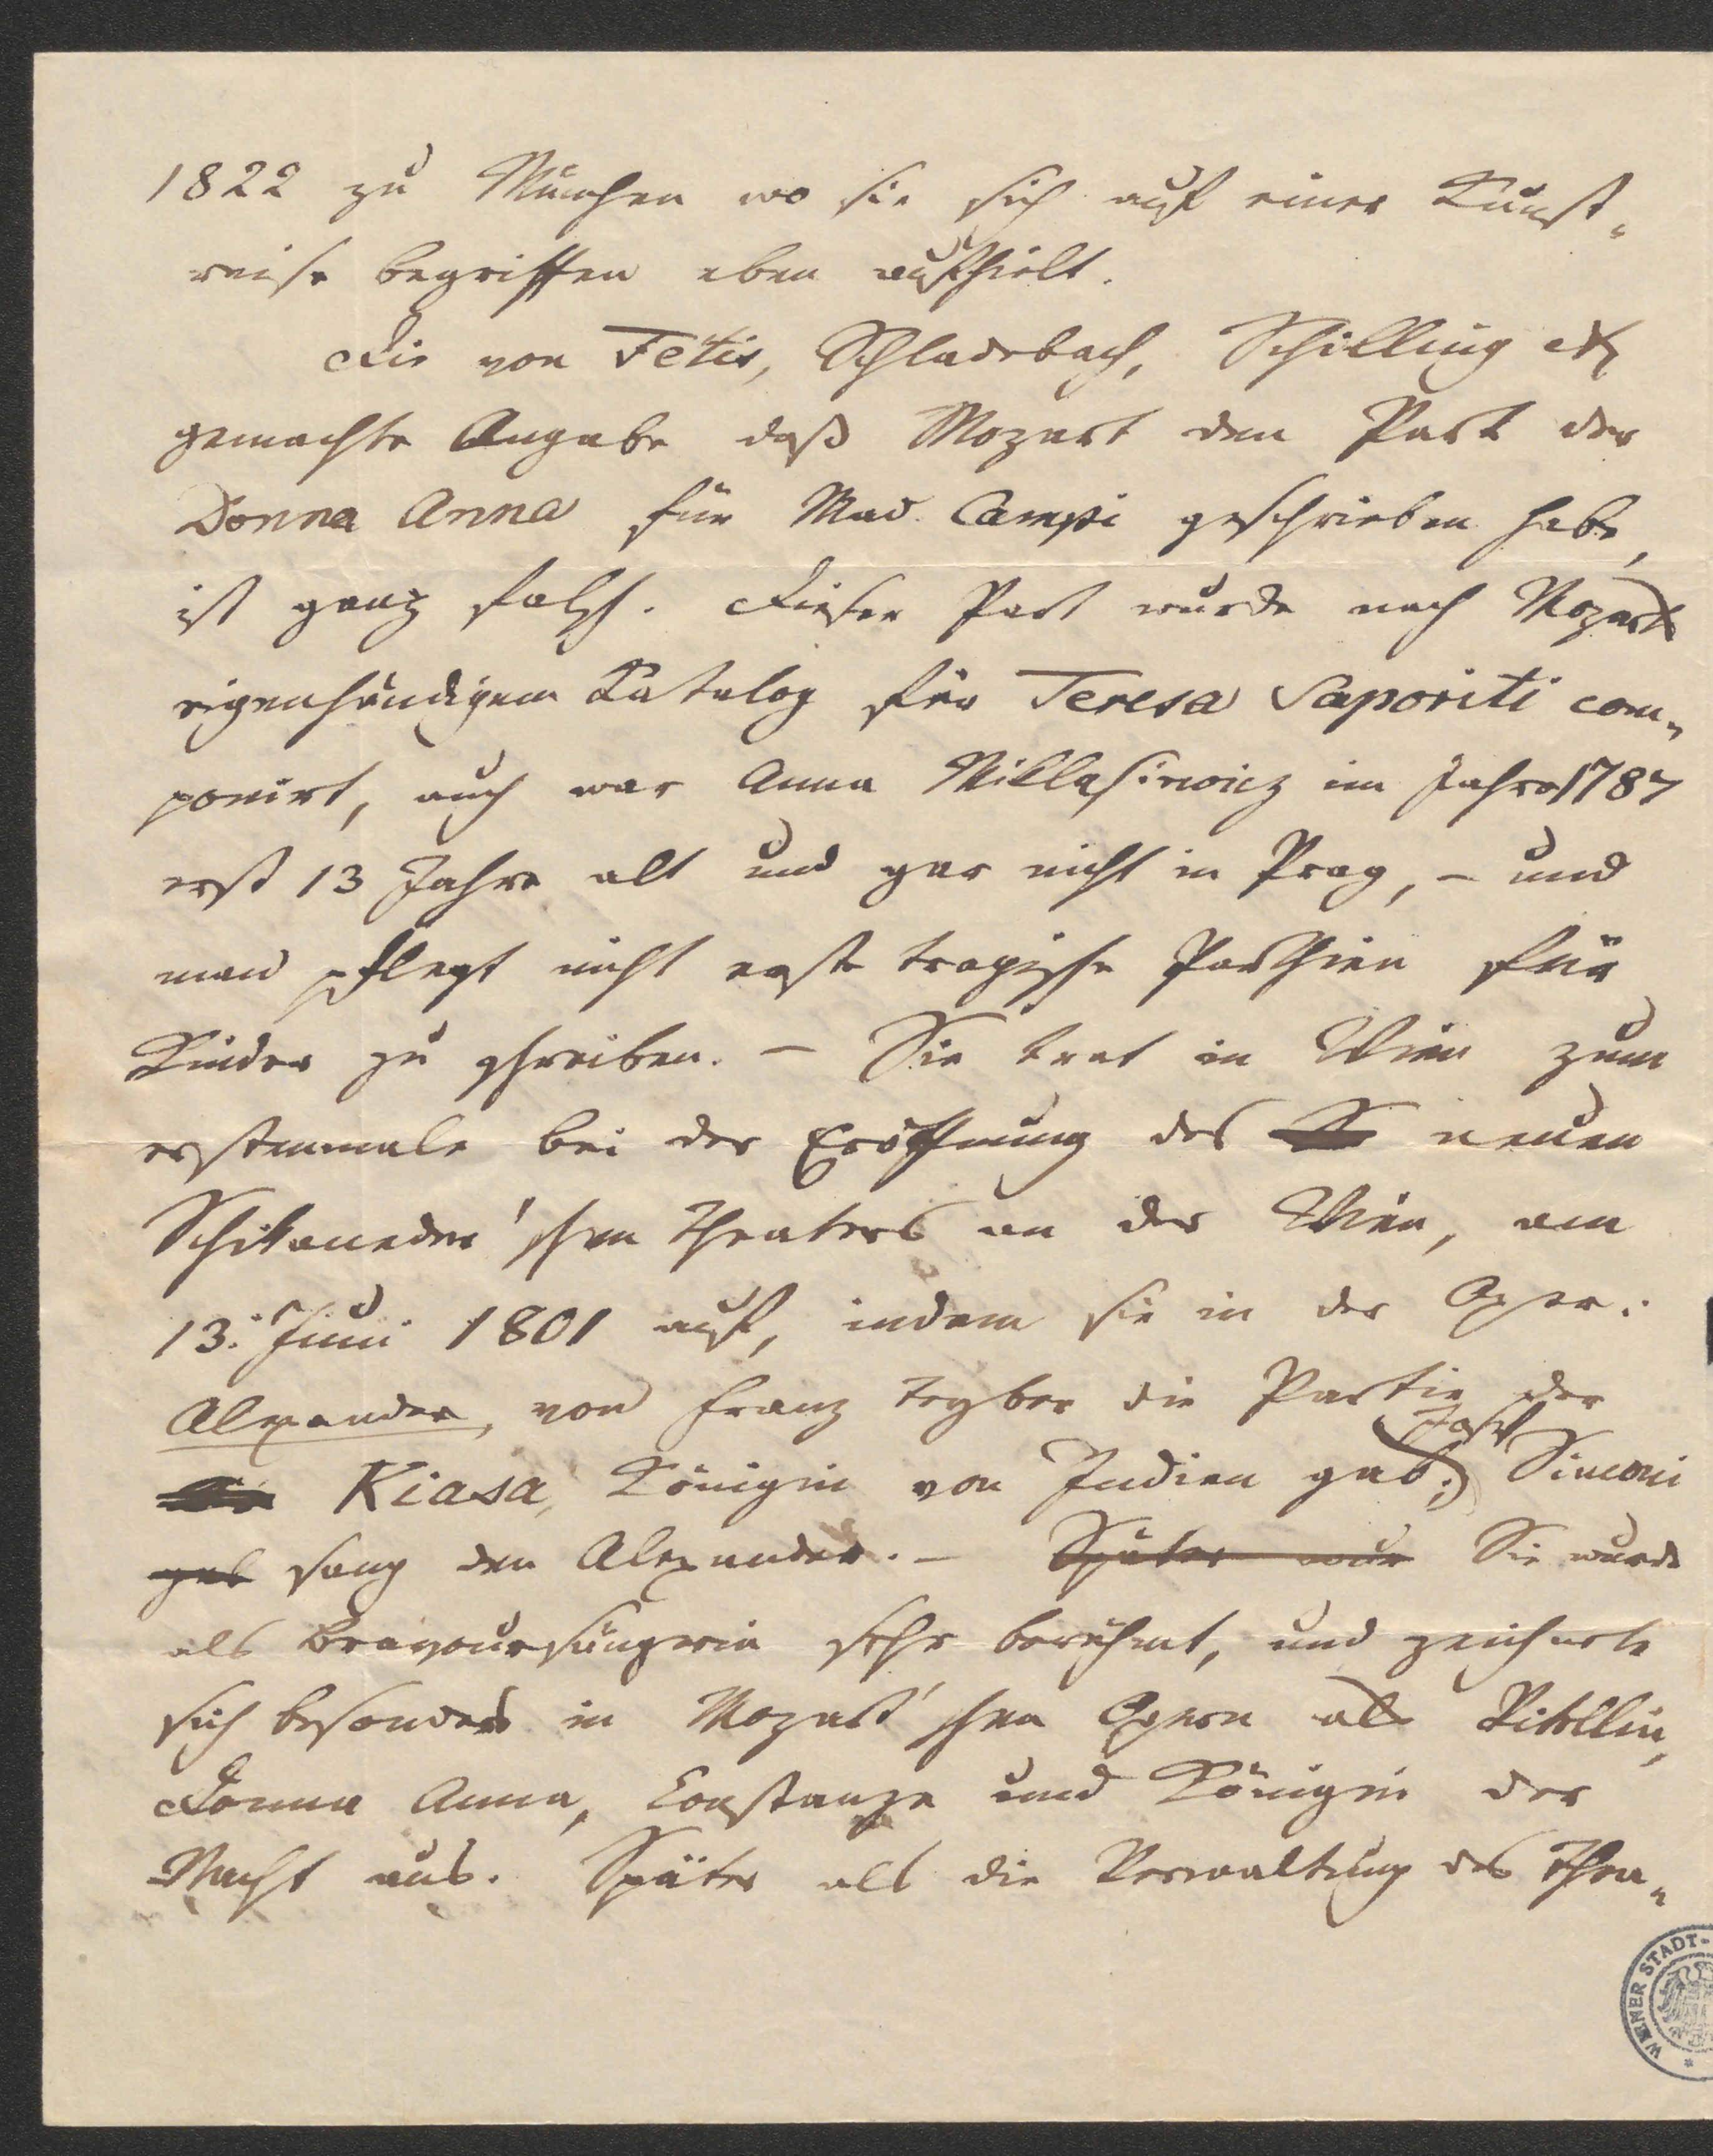 1822 zu München wo sie sich auf einer Kunst„
reise begriffen eben aufhielt.
Die von Fétis, Schladebach, Schilling etc
gemachte Angabe daß Mozart den Part der
Donna Anna für Mad. Campi geschrieben habe,
ist ganz falsch. Dieser Part wurde nach Mozarts
eigenhändigem Katalog für Teresa Saporiti com„
ponirt, auch war Anna Miklasiewicz im Jahre 1787
erst 13 Jahre alt und gar nicht in Prag, – und
man pflegt nicht erste tragische Parthien für
Kinder zu schreiben. – Sie trat in Wien zum
erstenmale bei der Eröffnung des neuen
Schikaneder'schen Theaters an der Wien, am
13. Juni 1801 auf, indem sie in der Oper:
Alexander, von Franz Teyber die Partie der
Kiasa, Königin von Indien gab; Josef Simoni
gab sang den Alexander. – Später wur Sie wurde
als Bravoursängerin sehr berühmt, und zeichnete
sich besonders in Mozart'schen Opern als Vitellia,
Donna Anna, Constanze und Königin der
Nacht aus. Später als die Verwaltung des Thea„
WIENER STADT-